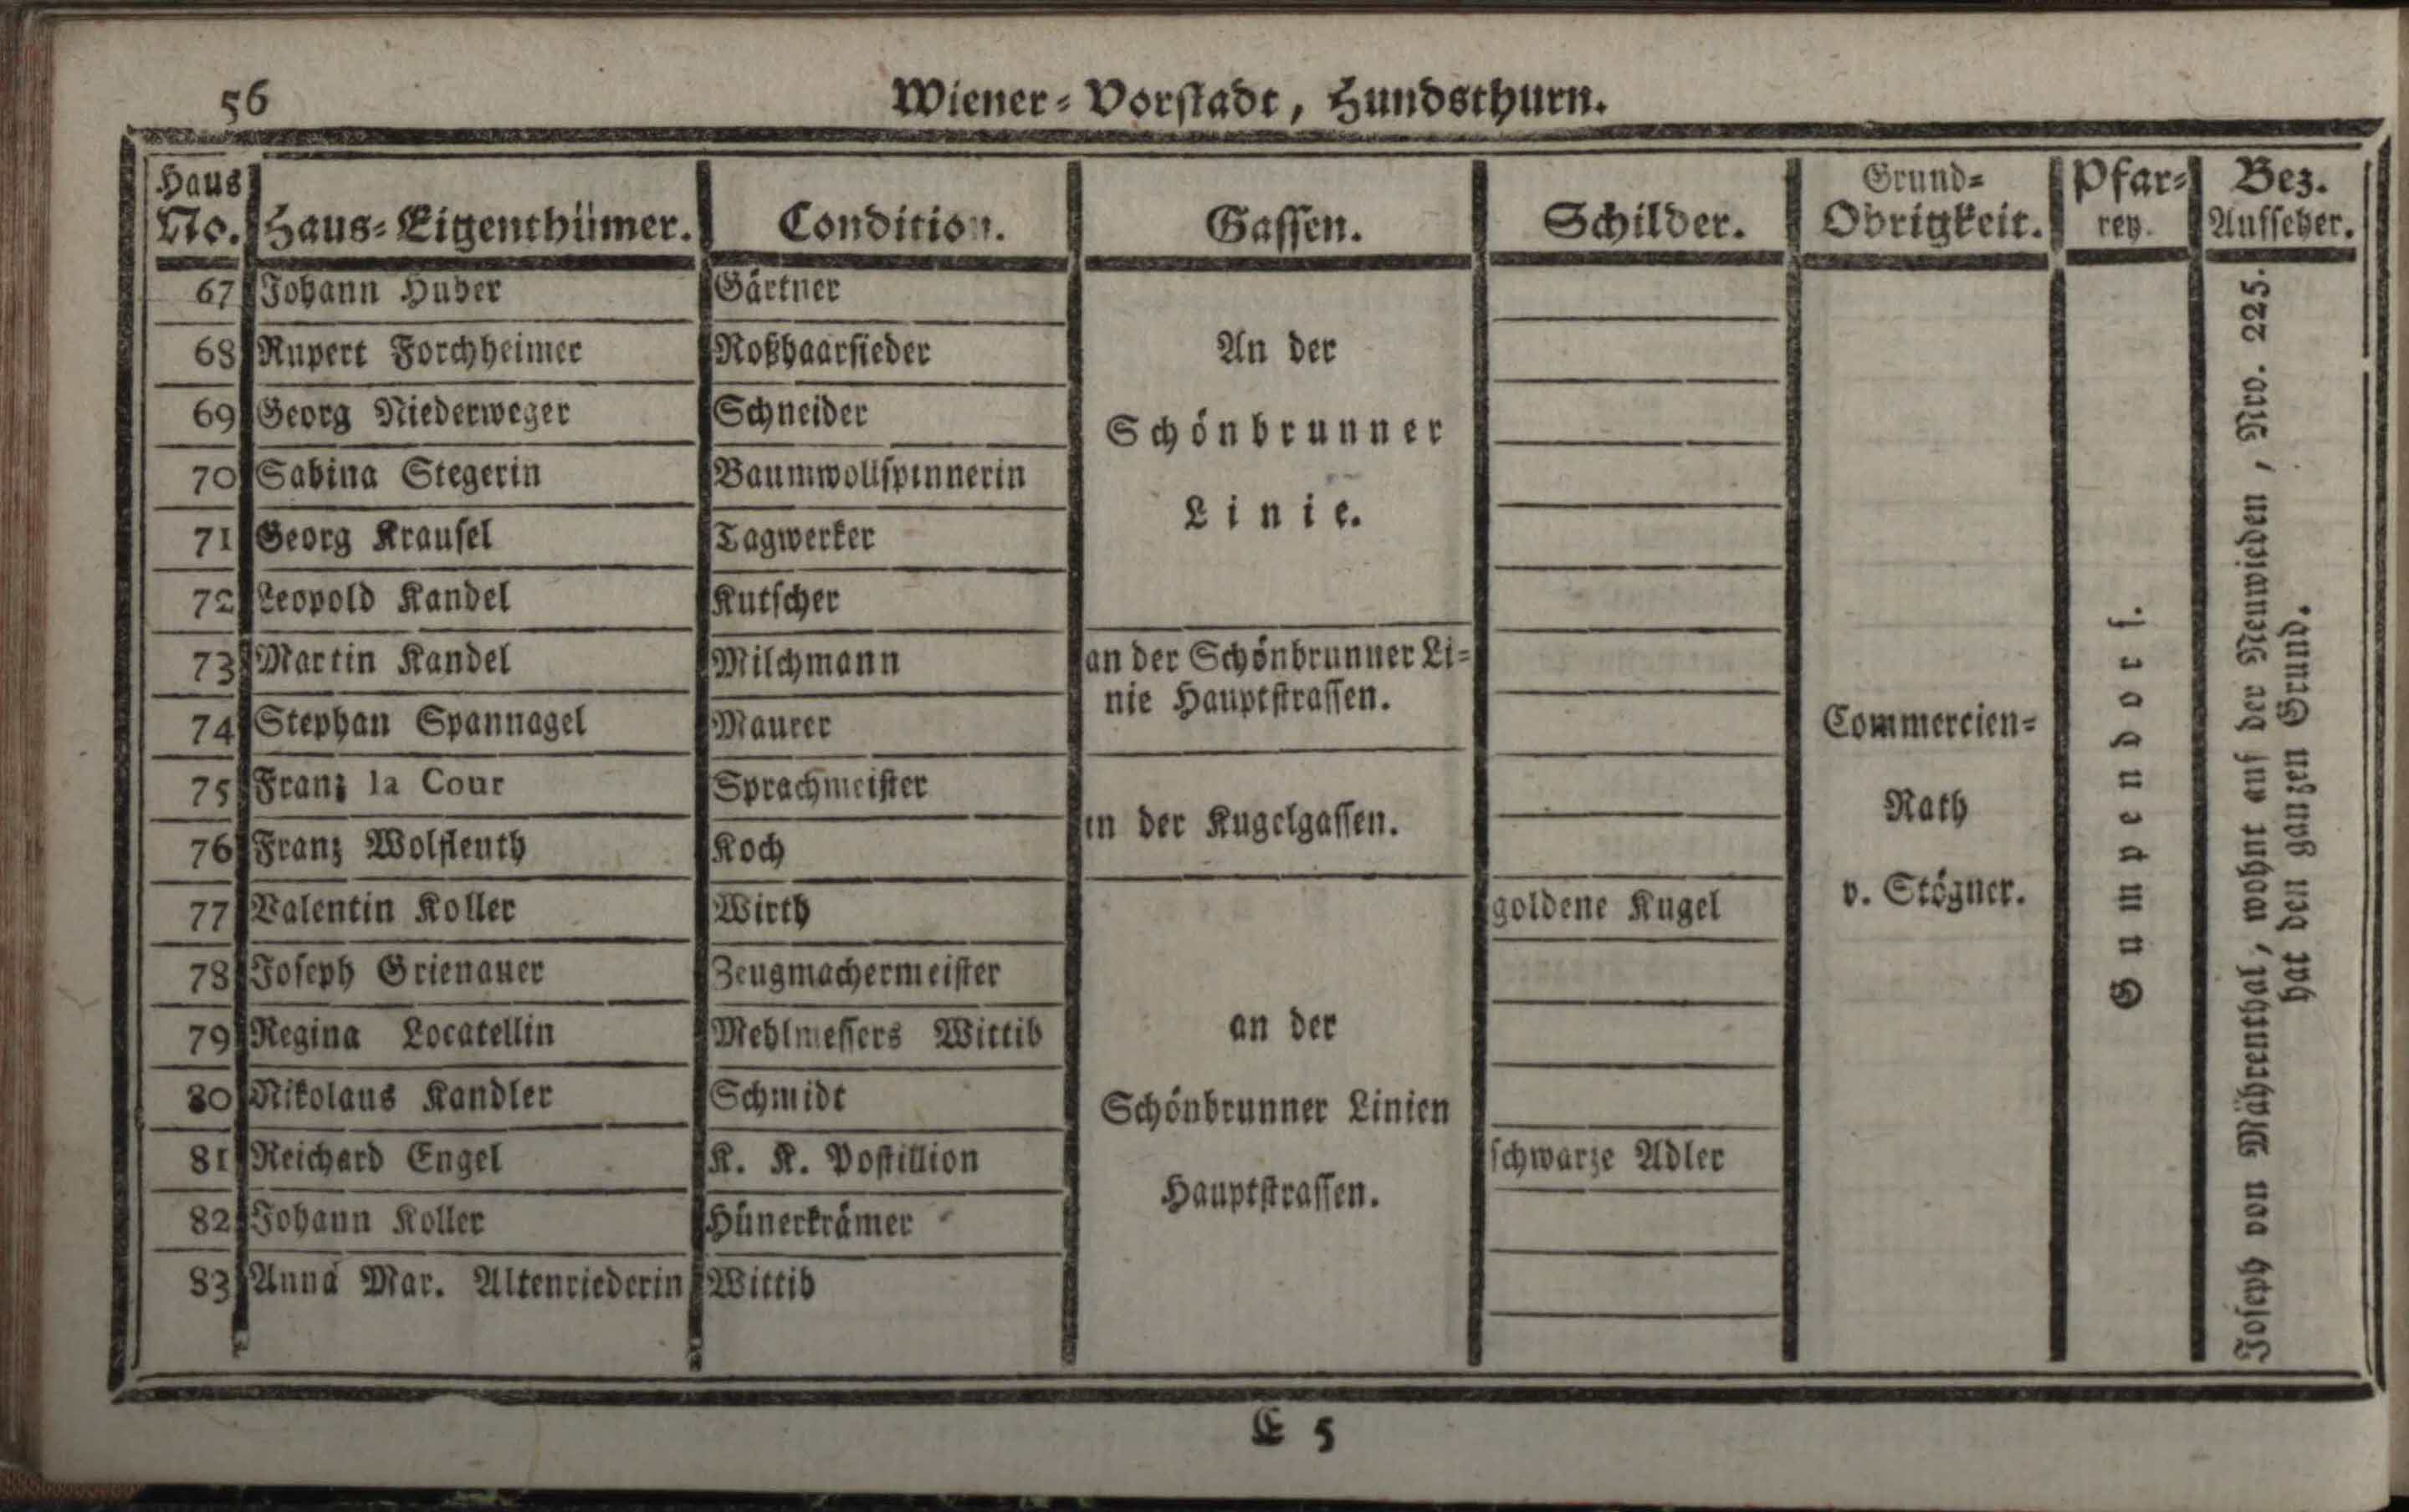 56
Wiener-Vorstadt, Hundsthurn.
Haus No. Haus-Eigenthümer. Condition. Gassen. Schilder. Grund-Obrigkeit. Pfar-rey. Bez. Aufseher.
67 Johann Huber Gärtner
68 Rupert Forchheimer Roßhaarsieder
69 Georg Niederweger Schneider
70 Sabina Stegerin Baumwollspinnerin
71 Georg Krausel Tagwerker
72 Leopold Kandel Kutscher
An der
Schönbrunner
Linie.
73 Martin Kandel Milchmann
74 Stephan Spannagel Maurer
an der Schönbrunner Li-
nie Hauptstrassen.
75 Franz la Cour Sprachmeister
76 Franz Wolfsleuth Koch
in der Kugelgassen.
77 Valentin Koller Wirth goldene Kugel
78 Joseph Grienauer Zeugmachermeister
79 Regina Locatellin Mehlmessers Wittib
80 Nikolaus Kandler Schmidt
81 Reichard Engel K. K. Postillion schwarze Adler
82 Johann Koller Hünerkrämer
83 Anna Mar. Altenriederin Wittib
an der
Schönbrunner Linien
Hauptstrassen.
Commercien-
Rath
v. Stögner.
Gumpendorf.
Joseph von Mährenthal, wohnt auf der Neuwieden, Nro. 225.
hat den ganzen Grund.
E 5